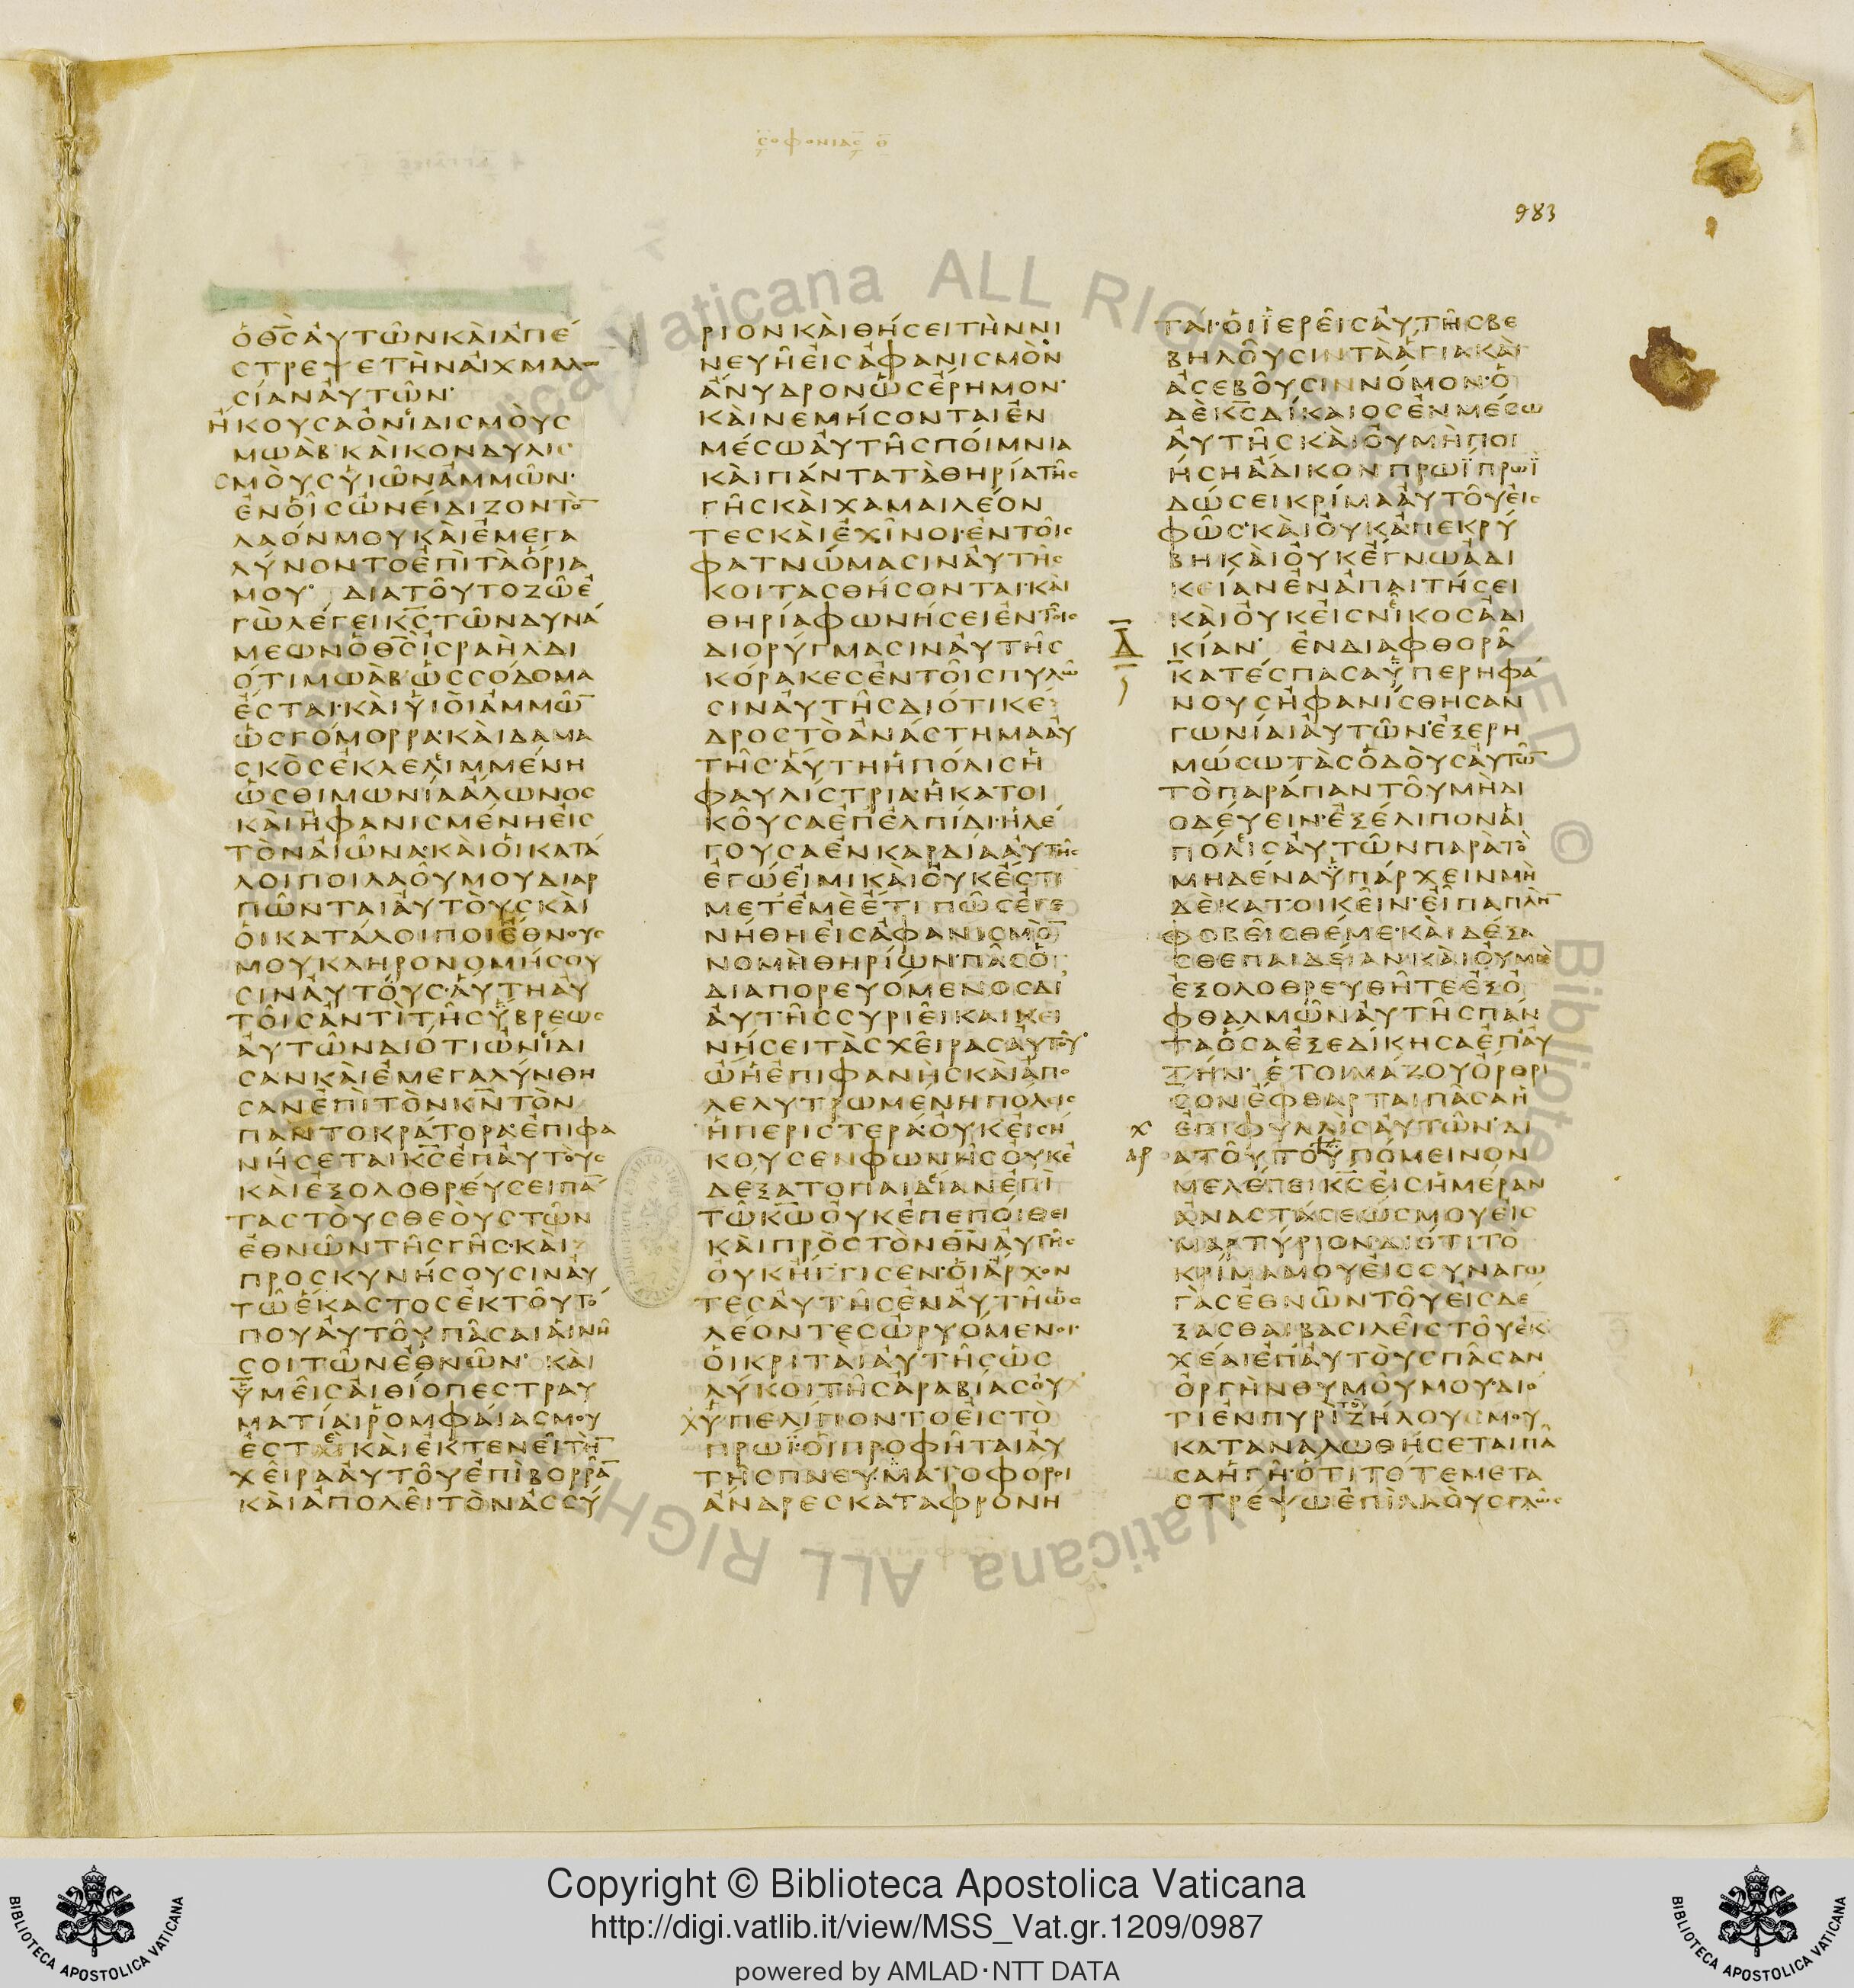 ϲοφονιαϲ θ
983
ὁθ̅ϲ̅ἀυτῶνκαὶἀπέ
ϲτρεψετὴνἀιχμαλω
ϲίανἀυτῶν·
ἤκουϲαὀνιδιϲμοὺϲ
μωὰβκαὶκονδυλιϲ
ϲμοὺϲυἱῶνἀμμών·
ἐνὁῖϲὠνείδιζοντὸ̅
λαόνμουκαὶἐμεγα
λύνοντοἐπὶτὰὅρια
μου· διατοῦτοζῶἐ
γὼλέγεικ̅ϲ̅τῶνδυνά
μεωνὁθ̅ϲ̅ἰϲραὴλδι
ότιμωὰβὡϲϲόδομα
ἔϲται·καὶυἱοὶἀμμώ̅
ὡϲγόμορρα·καὶδαμα
ϲκὸϲἐκλελιμμένη
ὡϲθιμωνίαἅλωνοϲ
καὶἠφανιϲμένηεἰϲ
τὸναἰῶνα·καὶὁικατά
λοιποιλαοῦμουδιαρ
πῶνταιἀυτοὺϲκαὶ
ὁικατάλοιποιἔθνουϲ
μουκληρονομήϲου
ϲινἀυτούϲ·ἅυτηἀυ
τοῖϲἀντὶτῆϲὕβρεωϲ
ἀυτῶνδιότιὠνίδι
ϲανκαὶἐμεγαλύνθη
ϲανἐπὶτὸνκ̅ν̅τὸν
παντοκράτορα·ἐπιφα
νήϲεταικ̅ϲ̅ἐπἀυτοὺϲ
καὶἐξολοθρεύϲειπά̅
ταϲτοὺϲθεοὺϲτῶν
ἐθνῶντῆϲγῆϲ·καὶ
προϲκυνήϲουϲινἀυ
τῶἕκαϲτοϲἐκτοῦτό
πουἀυτοῦπᾶϲαιἁινῆ
ϲοιτῶνἐθνῶν· καὶ
ὑμεῖϲἀιθίοπεϲτραυ
ματίαιῥομφαίαϲμου
ἐϲτὲκαὶἐκτενεῖτὴ̅
χεῖραἀυτοῦἐπὶβορρᾶ̅
καὶἀπολεῖτὸνἀϲϲύ
ριονκαὶθήϲειτὴννι
νευῆεἰϲἀφανιϲμὸν
ἄνυδρονὡϲἔρημον·
καὶνεμήϲονταιἐν
μέϲωἀυτῆϲποίμνια
καὶπάντατὰθηρίατῆϲ
γῆϲκαὶχαμαιλέον
τεϲκαὶἐχῖνοι·ἐντοῖϲ
φατνώμαϲινἀυτῆϲ
κοιταϲθήϲονται·καὶ
θηρίαφωνήϲειἐντοῖϲ
διορύγμαϲινἀυτῆϲ
κόρακεϲἐντοῖϲπυλῶ
ϲινἀυτῆϲδιότικέ
δροϲτὸἀνάϲτημαἀυ
τῆϲ·ἅυτηἡπόλιϲἡ
φαυλίϲτρια·ἡκατοι
κοῦϲαἐπἐλπίδι·ἡλέ
γουϲαἐνκαρδίαἀυτῆϲ
ἐγώεἰμικαὶὀυκἔϲτι
μετἐμὲἔτιπῶϲἐγε
νήθηεἰϲἀφανιϲμὸ̅
νομὴθηρίων·πᾶϲὁ
διαπορευόμενοϲδι
ἀυτῆϲϲυριεῖκαικει
νήϲειτὰϲχεῖραϲἀυτοῦ·
ὦἡἐπιφανὴϲκαὶἀπο
λελυτρωμένηπόλιϲ
ἡπεριϲτερά·ὀυκεἰϲή
κουϲενφωνῆϲὀυκἐ
δέξατοπαιδίανἐπὶ
τῶκ̅ω̅ὀυκἐπεποίθει
καὶπρὸϲτὸνθ̅ν̅ἀυτῆϲ
ὀυκήγγιϲεν·ὁιἄρχον
τεϲἀυτῆϲἐνἀυτῆὡϲ
λέοντεϲὠρυόμενοι·
ὁικριταὶἀυτῆϲὡϲ
λύκοιτῆϲἀραβίαϲὀυ
χὑπελίποντοεἰϲτὸ
πρωί·ὁιπροφῆταιἀυ
τῆϲπνευματοφόροι
ἄνδρεϲκαταφρονη
ταί·ὁιἱερεῖϲἀυτῆϲβε
βηλοῦϲιντὰἅγιακαὶ
ἀϲεβοῦϲιννόμον·ὁ
δὲκ̅ϲ̅δίκαιοϲἐνμέϲω
ἀυτῆϲκαὶὀυμὴποι
ήϲηἄδικονπρωῒπρωῒ
δώϲεικρίμαἀυτοῦεἰϲ
φῶϲ·καὶὀυκἀπεκρύ
βηκαὶὀυκἔγνωἀδι
κείανἐνἀπαιτήϲει
καὶὀυκεἰϲνῖκοϲἀδι
Δ κίαν· ἐνδιαφθορᾶ
κατέϲπαϲαὑπερηφά
νουϲἠφανίϲθηϲαν
γωνίαιἀυτῶν·ἐξερη
μώϲωτὰϲὁδοὺϲἀυτῶ̅
τὸπαράπαντοῦμὴδι
οδέυειν·ἐξέλιπονἁι
πόλιϲἀυτῶνπαρὰτὸ
μηδέναὑπάρχεινμὴ
δὲκατοικεῖν·εἶπαπλὴ̅
φοβεῖϲθέμε·καὶδέξα
ϲθεπαιδείανκαὶὀυμὴ
ἐξολοθρευθῆτεἐξὀ
φθαλμῶνἀυτῆϲπάν
ταὅϲαἐξεδίκηϲαἐπἀυ
τήν· ἑτοιμάζουὄρθρι
ϲονἔφθαρταιπᾶϲαἡ
χ ἐπιφυλλὶϲἀυτῶν·δι
αρ ατοῦτοὑπόμεινον
μελέγεικ̅ϲ̅εἰϲἡμέραν
ἀναϲτάϲεώϲμουεἰϲ
μαρτύριονδιότιτὸ
κρίμαμουεἰϲϲυναγω
γὰϲἐθνῶντοῦεἰϲδέ
ξαϲθαιβαϲιλεῖϲτοῦἐκ
χέαιἐπἀυτοὺϲπᾶϲαν
ὀργὴνθυμοῦμουδιό
τιἐνπυρὶζήλουϲμου
καταναλωθήϲεταιπᾶ
ϲαἡγῆ·ὅτιτότεμετα
ϲτρέψωἐπὶλαοὺϲγλῶϲ
Copyright © Biblioteca Apostolica Vaticana
http://digi.vatlib.it/view/MSS_Vat.gr.1209/0987
powered by AMLAD·NTT DATA
BIBLIOTECA APOSTOLICA VATICANA
BIBLIOTECA APOSTOLICA VATICANA